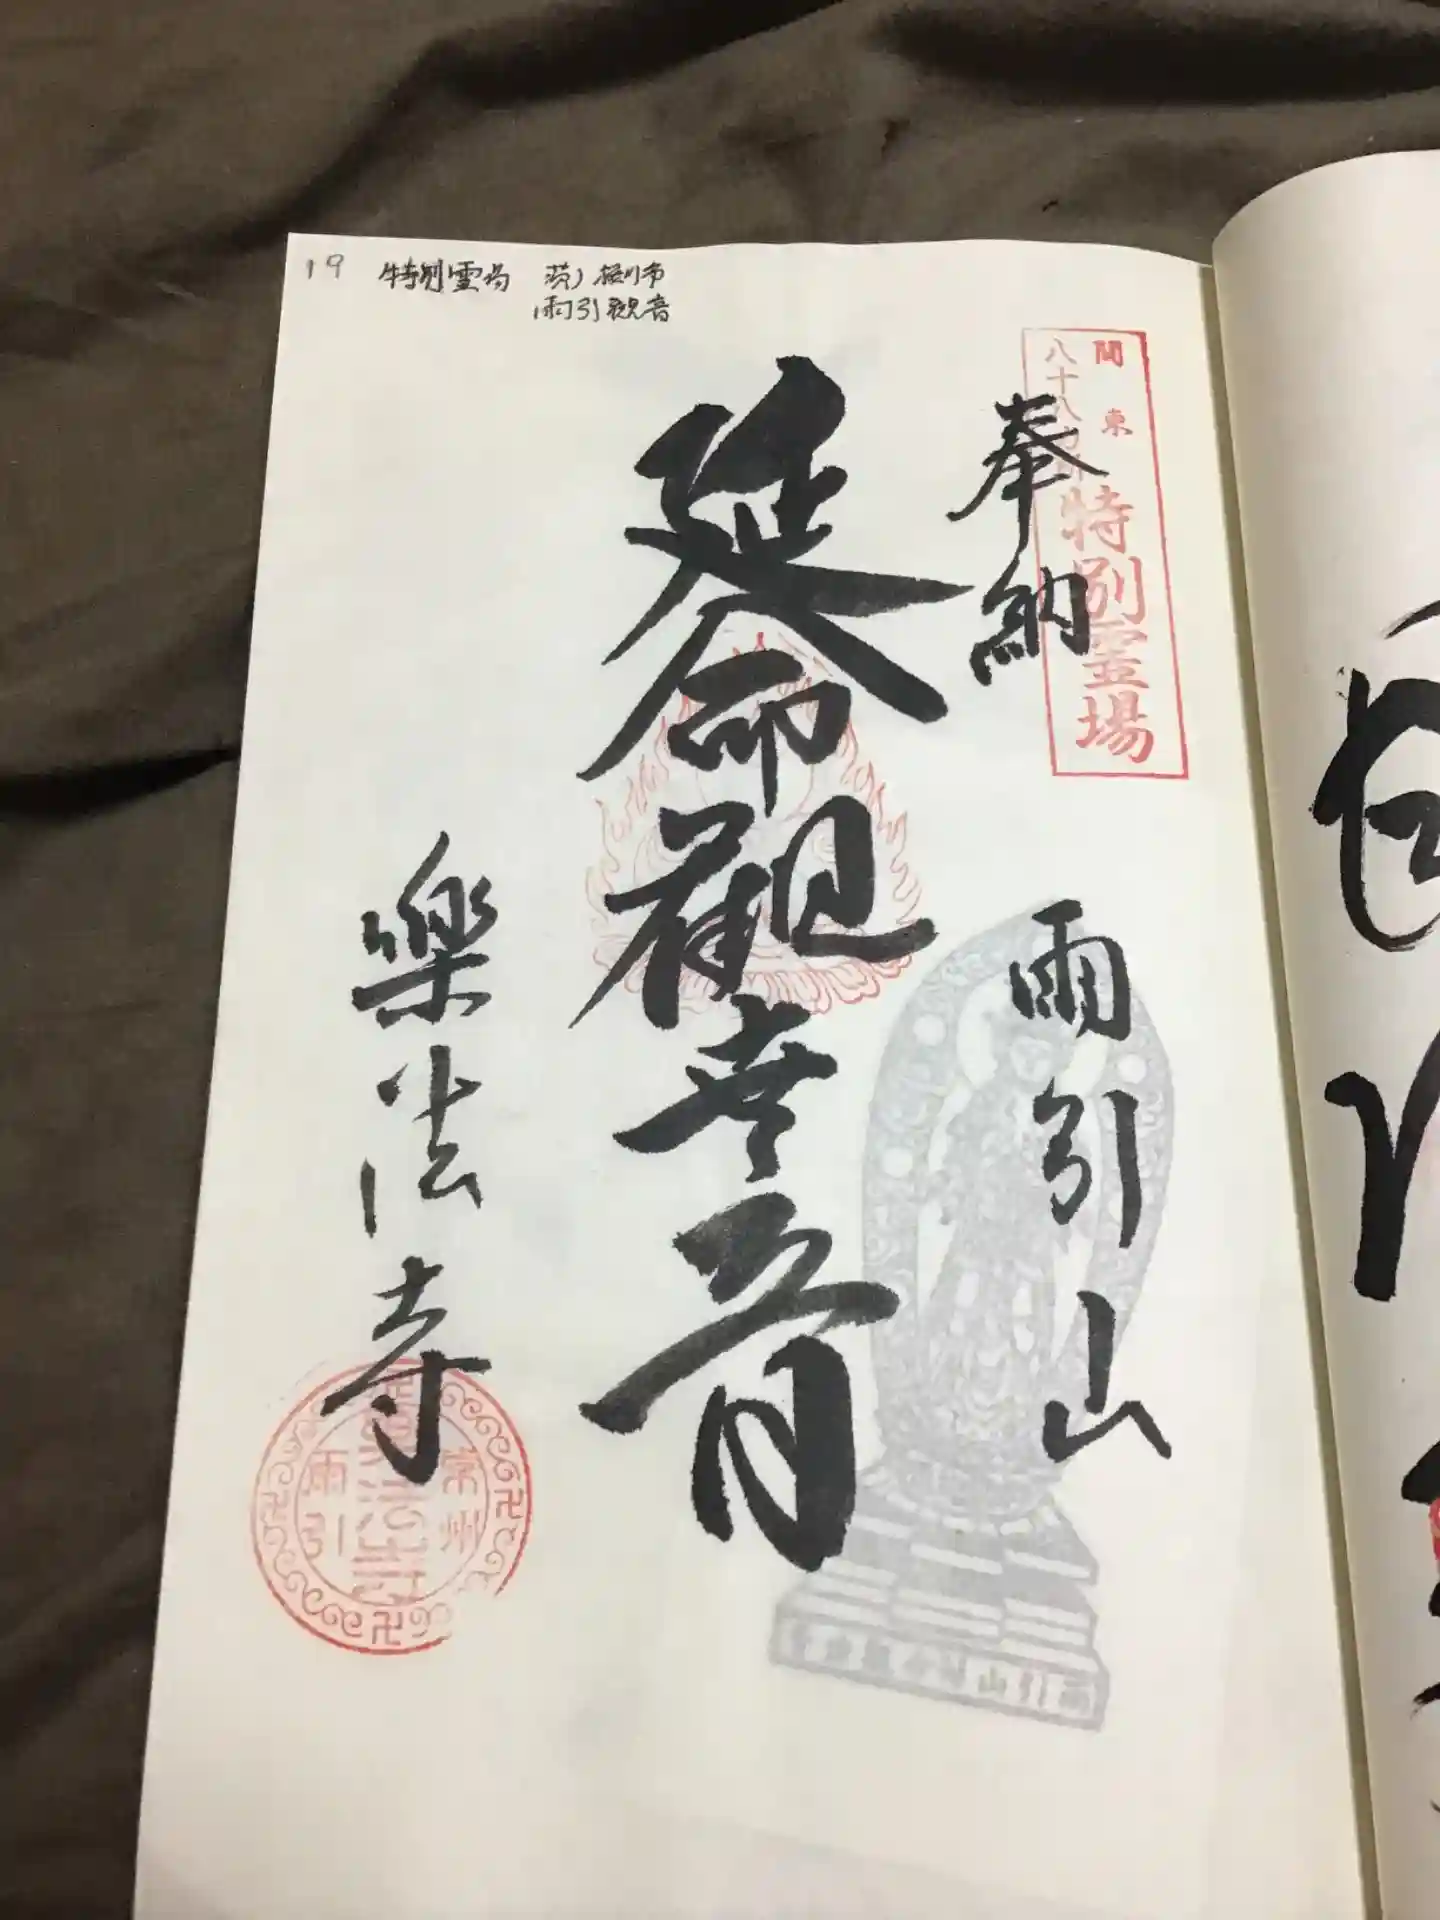 19 特別霊场 茨) 桜川市
雨引観音
関東
八十八カ所
特別霊場
奉納
雨引山
延命観世音
樂法寺
常州
樂法寺
雨引